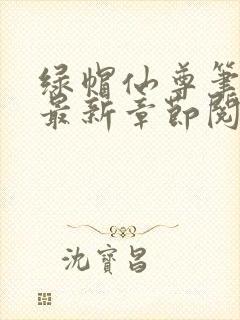 绿帽仙尊笔
最新章节阅
沈寳昌